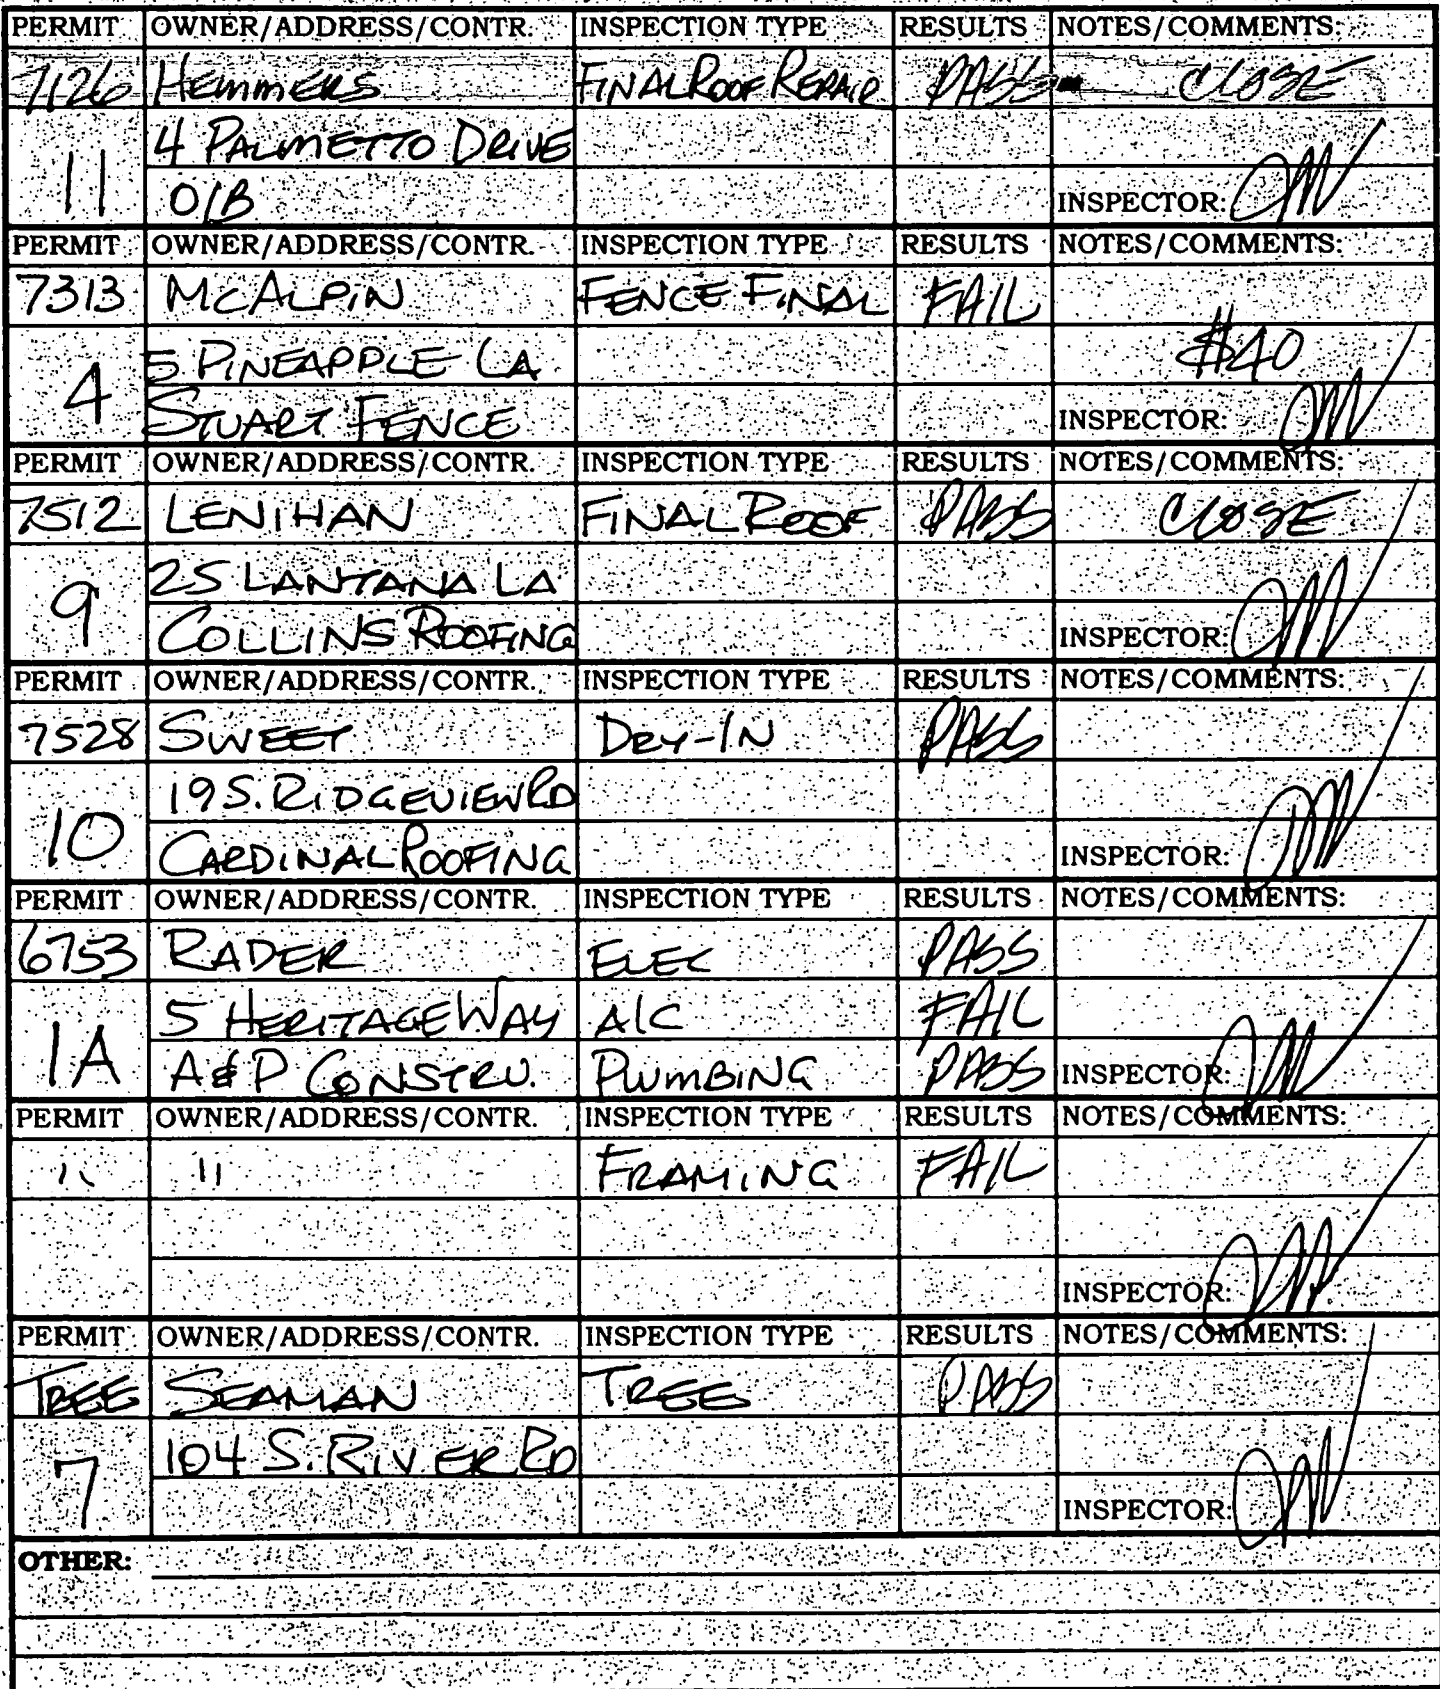 PERMIT OWNER/ADDRESS/CONTR. INSPECTION TYPE RESULTS NOTES/COMMENTS:
7126 HEMMERS FINAL ROOF REPAIR PASS CLOSE
4 PALMETTO DRIVE
11 O/B INSPECTOR:
PERMIT OWNER/ADDRESS/CONTR. INSPECTION TYPE RESULTS NOTES/COMMENTS:
7313 MCALPIN FENCE FINAL FAIL
5 PINEAPPLE LA $40
4 STUART FENCE INSPECTOR:
PERMIT OWNER/ADDRESS/CONTR. INSPECTION TYPE RESULTS NOTES/COMMENTS:
7512 LENIHAN FINAL ROOF PASS CLOSE
25 LANTANA LA
9 COLLINS ROOFING INSPECTOR:
PERMIT OWNER/ADDRESS/CONTR. INSPECTION TYPE RESULTS NOTES/COMMENTS:
7528 SWEET DRY-IN PASS
19 S. RIDGEVIEW RD
10 CARDINAL ROOFING INSPECTOR:
PERMIT OWNER/ADDRESS/CONTR. INSPECTION TYPE RESULTS NOTES/COMMENTS:
6753 RADER ELEC PASS
5 HERITAGE WAY A/C FAIL
1A A&P CONSTRU. PLUMBING PASS INSPECTOR:
PERMIT OWNER/ADDRESS/CONTR. INSPECTION TYPE RESULTS NOTES/COMMENTS:
" " FRAMING FAIL
INSPECTOR:
PERMIT OWNER/ADDRESS/CONTR. INSPECTION TYPE RESULTS NOTES/COMMENTS:
TREE SEAMAN TREE PASS
104 S. RIVER RD
7 INSPECTOR:
OTHER: